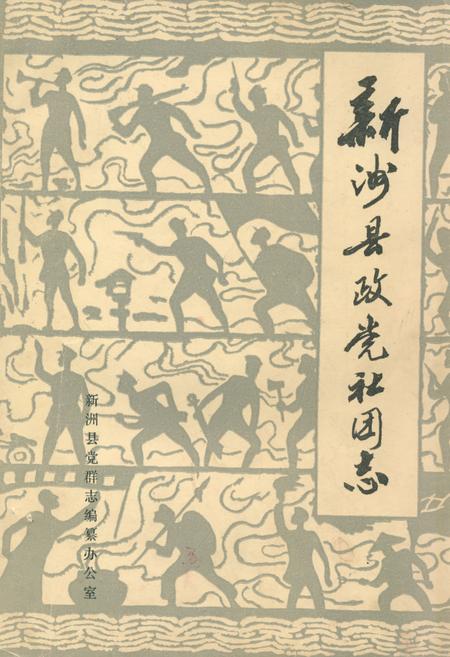 新洲县政党社团志
新洲县党群志编纂办公室